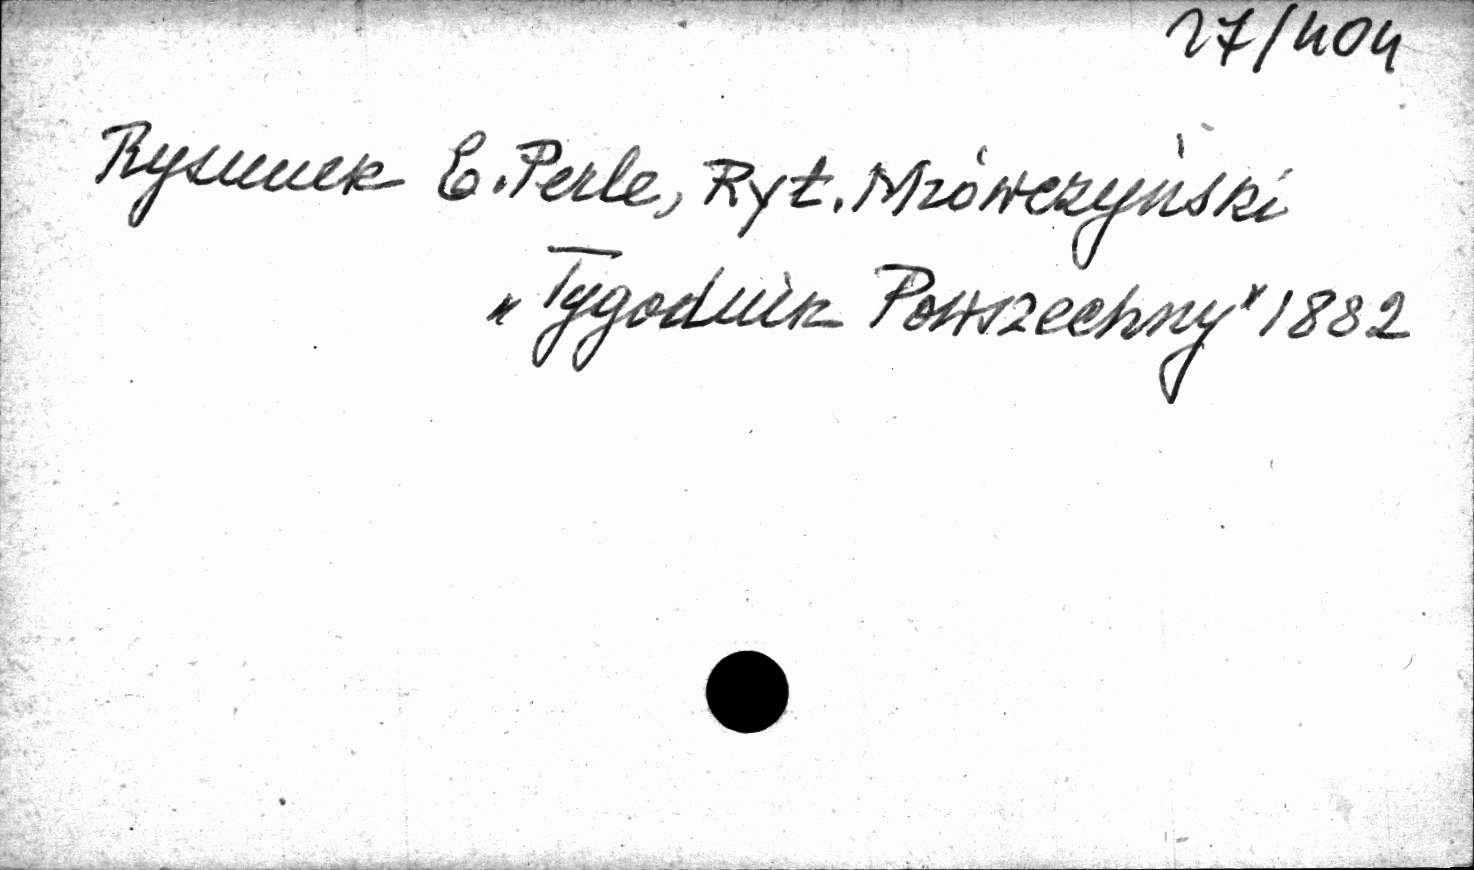 27/404
Rysunek E. Perle, Ryt. Mrówczyński
„Tygodnik Powszechny" 1882